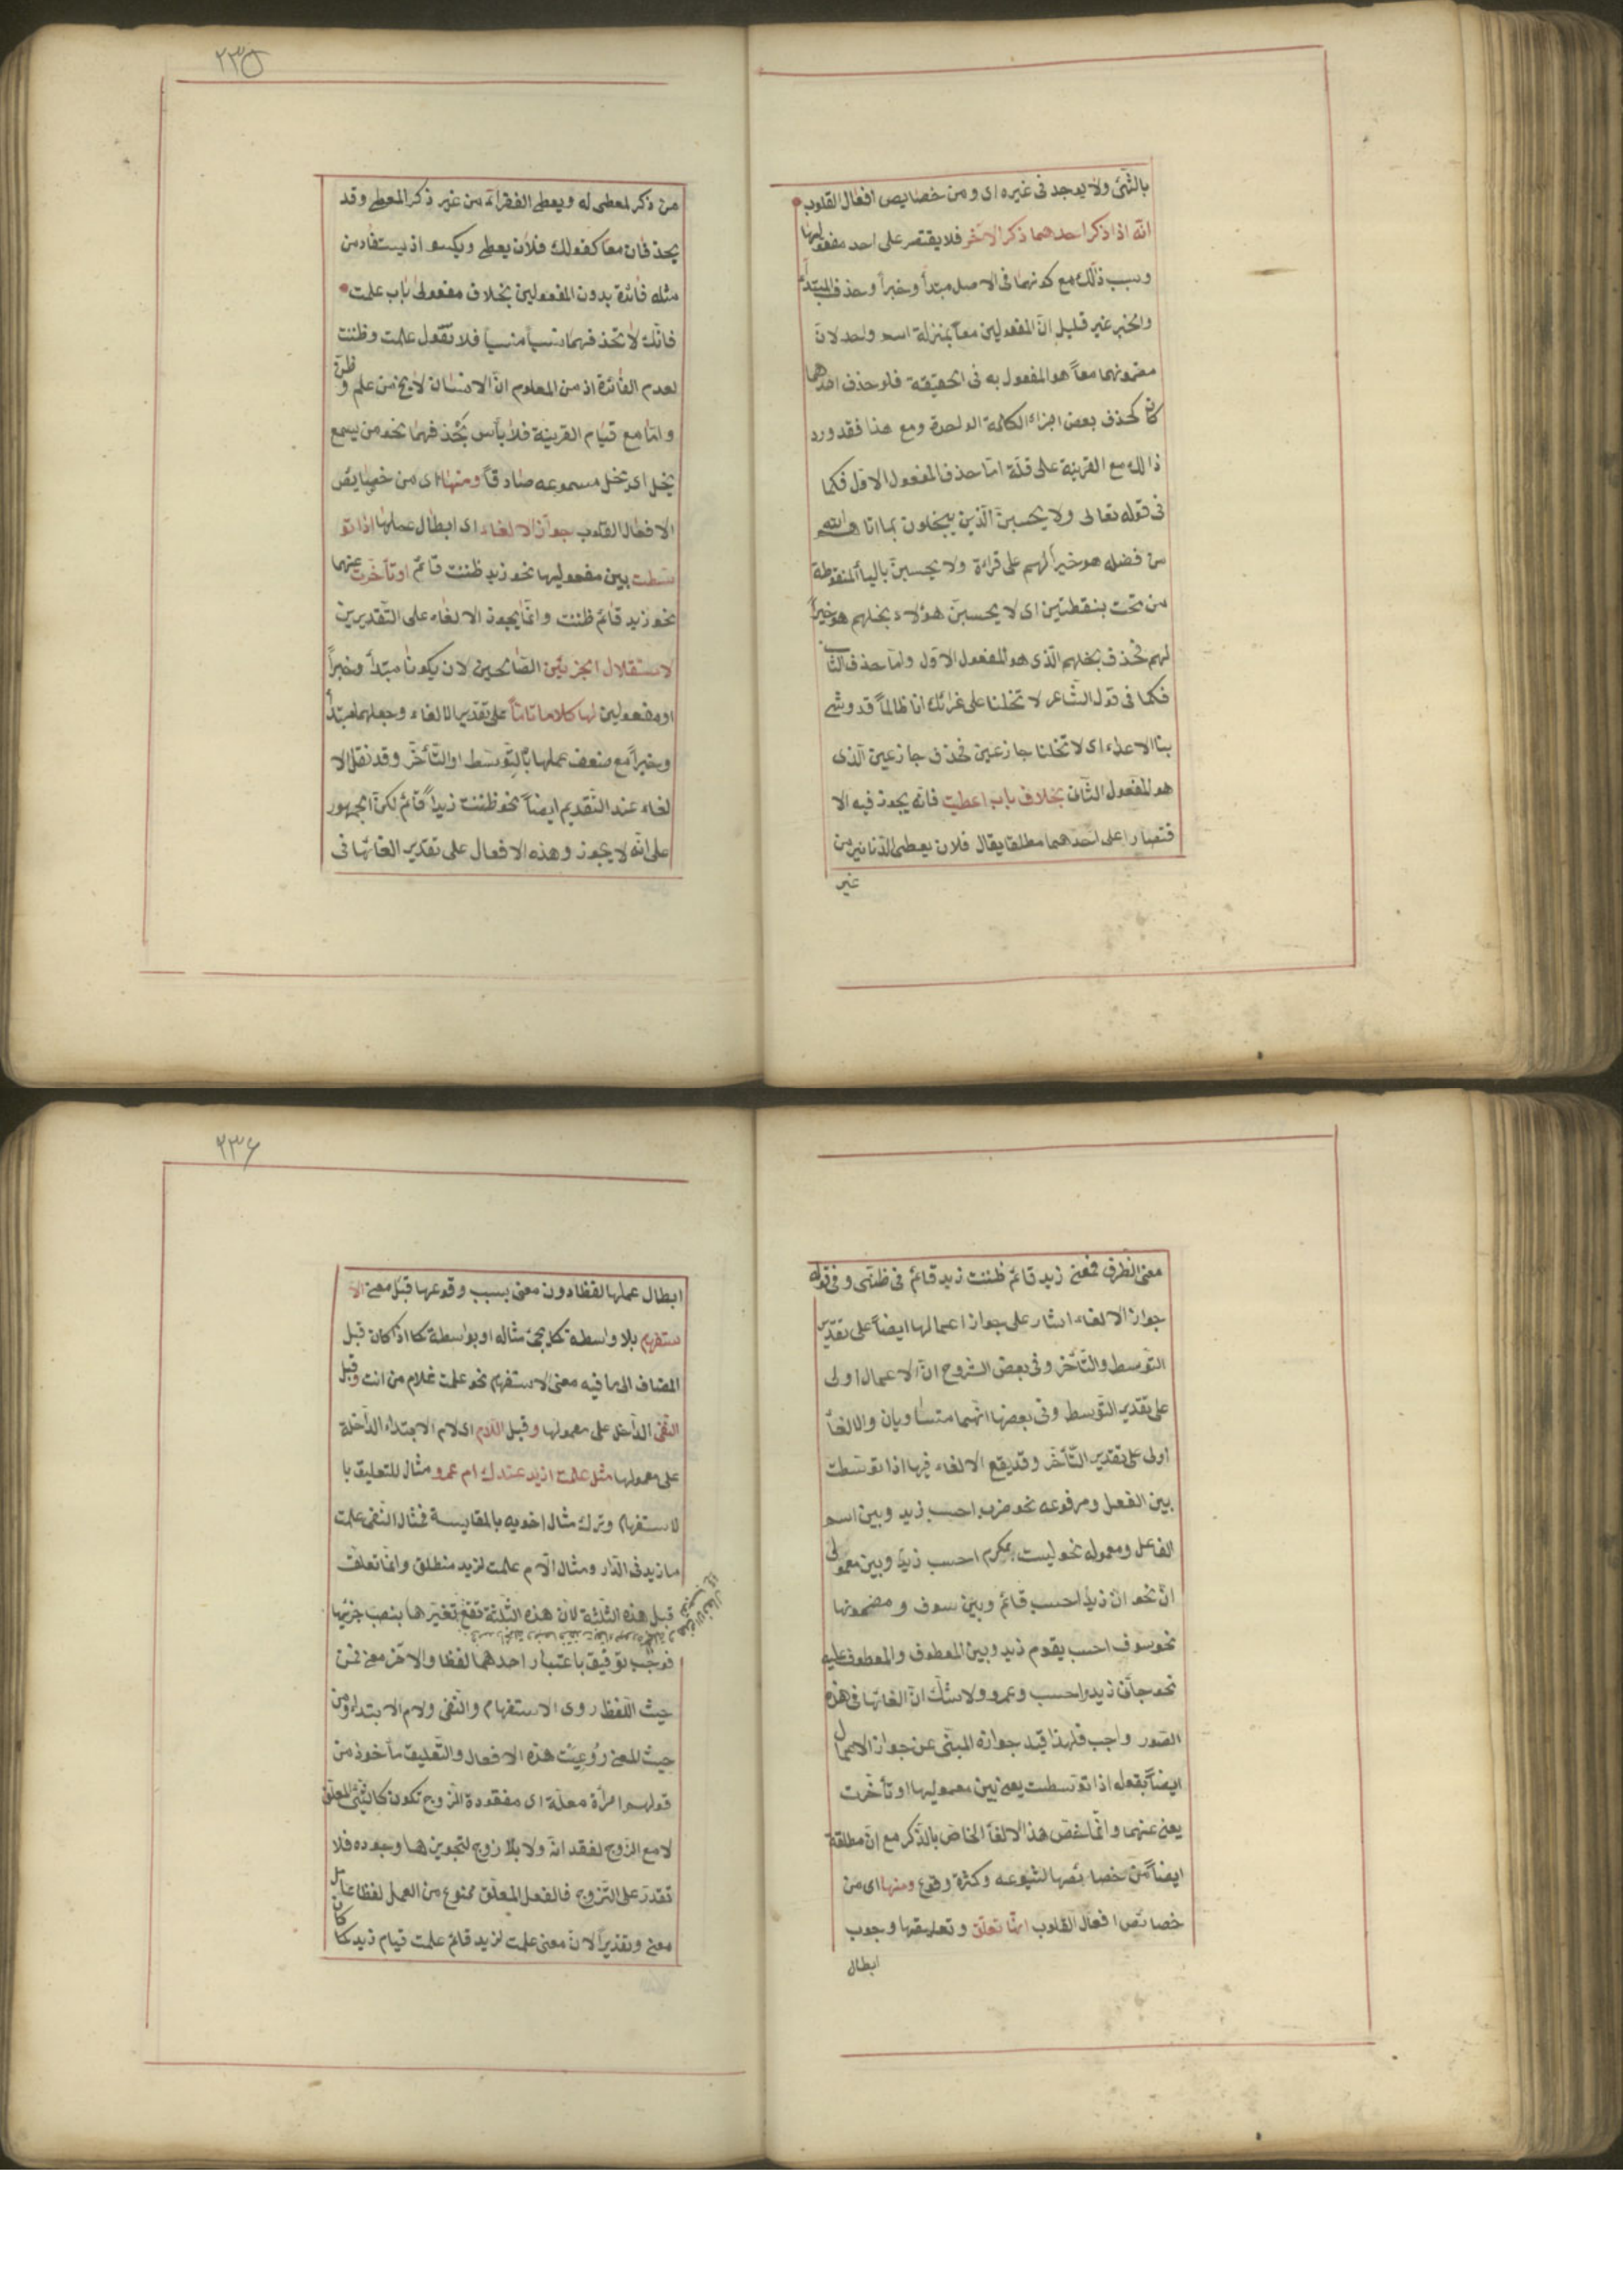 بالشّئ ولا يوجد فى غيره اى ومن خصايص افعال القلوب
انّه اذا ذكر احدهما ذكر الآخر فلا يقتصر على احد مفعوليها
وسبب ذلك مع كونهما فى الاصل مبتدأ وخبراً وحذف المبتدأ
والخبر غير قليل انّ المفعولين معاً بمنزلة اسم واحد لانّ
مضمونهما معاً هو المفعول به فى الحقيقة فلو حذف احدهما
كان كحذف بعض اجزاء الكلمة الواحدة ومع هذا فقد ورد
ذالك مع القرينة على قلّة امّا حذف المفعول الاوّل فكما
فى قوله تعالى ولا يحسبنّ الّذين يبخلون بما اتاهم الله
من فضله هو خيراً لهم على قراءة ولا يحسبنّ بالياء المنقوطة
من تحت بنقطتين اى لا يحسبنّ هؤلاء بخلهم هو خيراً
لهم فحذف بخلهم الّذى هو المفعول الاوّل وامّا حذف الثّانى
فكما فى قول الشّاعر لا تخلنا على غرائك انا طالماً قد وشى
بنا الاعداء اى لا تخلنا جازعين فحذف جازعين الّذى
هو المفعول الثّان بخلاف باب اعطيت فانّه يجوز فيه الا
قتصار على احدهما مطلقا يقال فلان يعطى الدّنانير من
غير
٢٣٥
من ذكر لمعطى له ويعطى الفقراء من غير ذكر المعطى وقد
يحذفان معا كقولك فلان يعطى ويكسو اذ يستفاد من
مثله فائدة بدون المفعولين بخلاف مفعولى باب علمت
فانّك لا تحذفهما نسياً منسياً فلا تقول علمت وظننت
لعدم الفائدة اذ من المعلوم انّ الانسان لا يخ من علم وظنّ
وامّا مع قيام القرينة فلا بأس بحذفهما نحو من يسمع
يخل اى يخل مسموعه صادقاً ومنها اى من خصايص
الافعال القلوب جواز الالغاء اى ابطال عملها اذا تو
سّطت بين مفعوليها نحو زيد ظننت قائم او تأخّرت عنهما
نحو زيد قائم ظننت وانّما يجوز الالغاء على التّقديرين
لاستقلال الجزئين الصّالحين لان يكونا مبتدأ وخبراً
او مفعولين لها كلاما تامّاً على تقدير الالغاء وجعلهما مبتدأ
وخبراً مع ضعف عملها بالتّوسّط او التّأخّر وقد نقل الا
لغاء عند التّقديم ايضاً نحو ظننت زيداً قائم لكنّ الجمهور
على انّه لا يجوز وهذه الافعال على تقدير الغائها فى
معنى الظرف فمعنى زيد قائم ظننت زيد قائم فى ظنّى وفى قوله
جواز الالغاء اشار على جواز اعمالها ايضاً على تقدير
التّوسط والتّأخّر وفى بعض الشروح انّ الاعمال اولى
على تقدير التّوسط وفى بعضها انّهما متساويان والالغاء
اولى على تقدير التّأخّر وقد يقع الالغاء فيها اذا توسّطت
بين الفعل ومرفوعه نحو ضرب احسب زيد وبين اسم
الفاعل ومعموله نحو ليست بمكرم احسب زيداً وبين معمولى
انّ نحو انّ زيداً احسب قائم وبين سوف و مضمونها
نحو سوف احسب يقوم زيد وبين المعطوف والمعطوف عليه
نحو جأنى زيد احسب وعمرو ولا شكّ انّ الغائها فى هذه
الصّور واجب فلهذا قيّد جوازه المبنى عن جواز الاعمال
ايضاً بقوله اذا توسّطت يعنى بين معموليها او تأخّرت
يعنى عنهما وانّما خصّ هذا الالغاء الخاصّ بالذّكر مع انّ مطلقة
ايضاً من خصائصها لشيوعه وكثرة وقوع ومنها اى من
خصائص افعال القلوب انّها تعلّق وتعليقها وجوب
ابطال
٢٣٦
ابطال عملها لفظا دون معنى بسبب وقوعها قبل معنى الا
ستفهم بلا واسطة كما يجئ مثاله او بواسطة كما اذا كان قبل
المضاف الى ما فيه معنى الاستفهم نحو علمت غلام من انت وقبل
النّفى الدّاخل على معمولها وقبل اللّام اى لام الابتداء الدّاخلة
على معمولها مثل علمت ازيد عندك ام عمرو مثال للتعليق با
لاستفهام وترك مثال اخويه بالمقايسة فمثال النّفى علمت
ما زيد فى الدّار ومثال اللّام علمت لزيد منطلق وانّما تعلّق
قبل هذه الثّلثة لانّ هذه الثّلثة تقع
فوجب توفيق باعتبار احدهما لفظا والآخر معنى فمن
حيث اللّفظ روى الاستفهام والنّفى ولام الابتداء ومن
حيث المعنى رُوعِيَت هذه الافعال والتّعليق مأخوذ من
قولهم امرأة معلّقة اى مفقودة الزّوج تكون كالشّئ المعلّق
لا مع الزّوج لفقدانه ولا بلا زوج لتجويزها وجوده فلا
تقدر على التّزوج فالفعل المعلّق ممنوع من العمل لفظا عامل
معنى وتقديراً لانّ معنى علمت لزيد قائم علمت قيام زيد كما كان